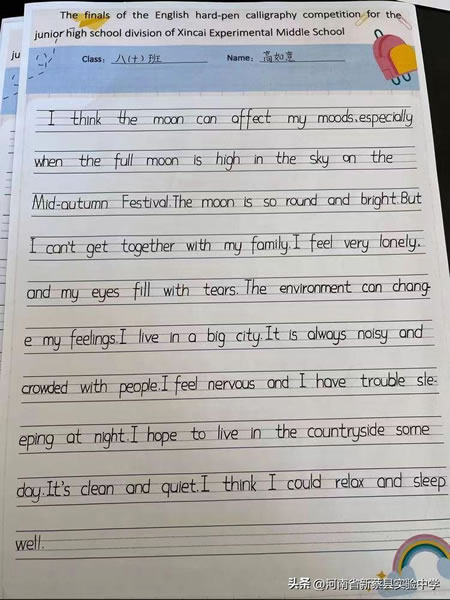 The finals of the English hard-pen calligraphy competition for the
junior high school division of Xincai Experimental Middle School
ju
Class: 八(十)班 Name: 高如意
I think the moon can affect my moods.especially
when the full moon is high in the sky on the
Mid-autumn Festival.The moon is so round and bright.But
I can't get together with my family.I feel very lonely.
and my eyes fill with tears. The environment can chang-
e my feelings.I live in a big city.It is always noisy and
crowded with people.I feel nervous and I have trouble sle-
eping at night.I hope to live in the countryside some
day.It's clean and quiet.I think I could relax and sleep
well.
头条 @河南省新蔡县实验中学